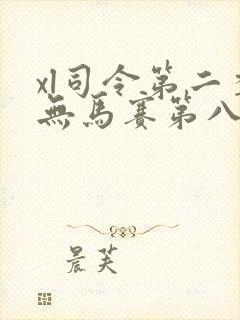 xl司令第二
無馬賽第八
晨芙